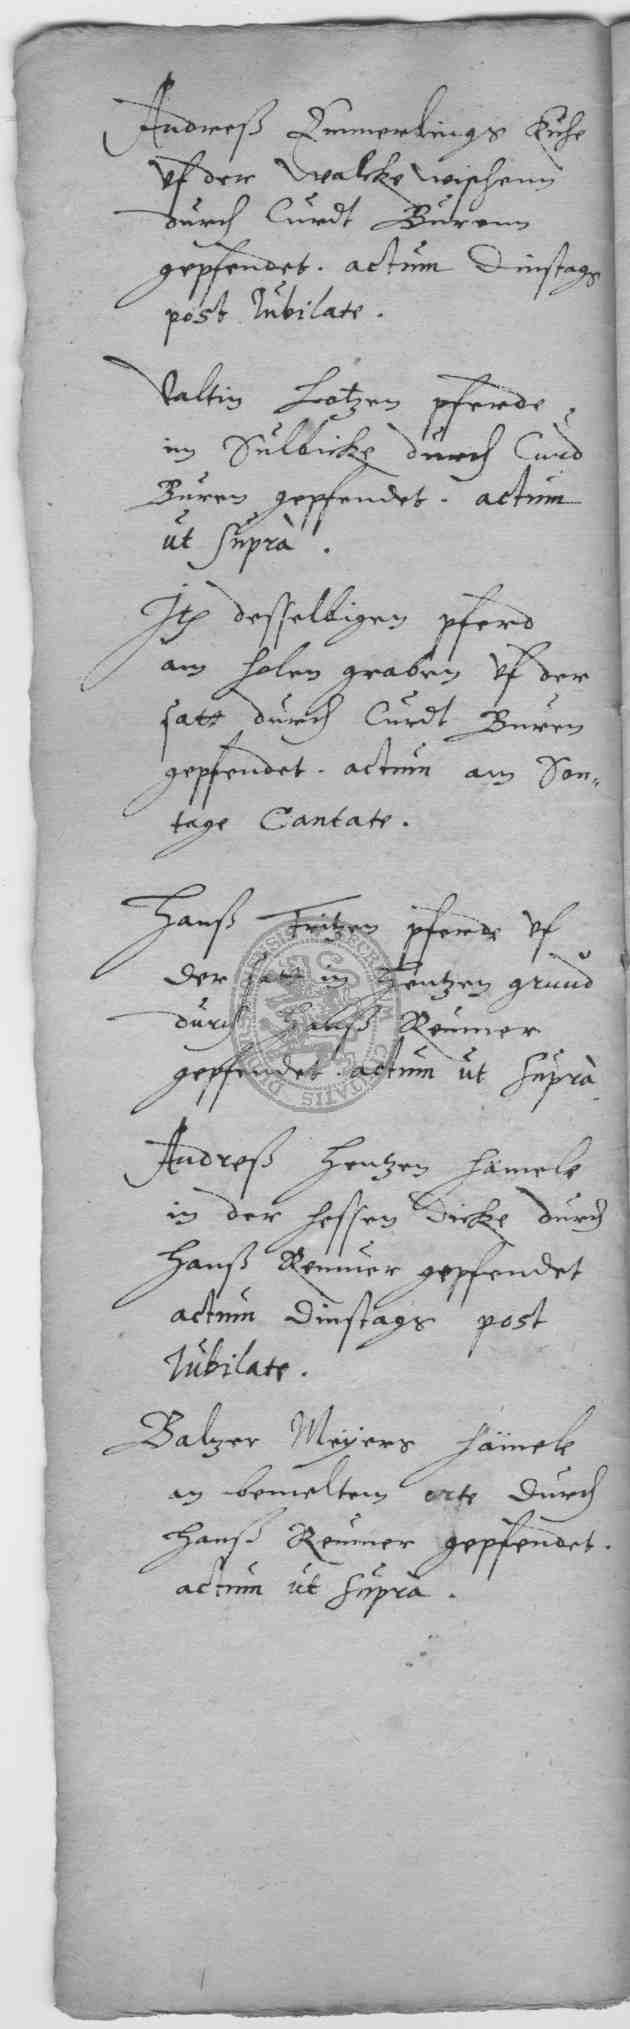 Andreß Emmerlings Kuhe
uf der Walcke wischenn
durch Curdt Burenn
gepfendet. actum Dinstags
post Jubilate.
Valtin Lotzen pferde
im Sulbicke durch Curd
Buren gepfendet. actum
ut suprà.
Jtem desselbigen pferd
am holen graben uf der
satt durch Curdt Buren
gepfendet. actum am Son„
tage Cantate.
Hanß Fritzen pferde uf
der satt in Hentzen grund
durch Hanß Reumer
gepfendet. actum ut suprà
Andreß Hentzen hämele
in der hessen Dicke durch
Hanß Reumer gepfendet
actum Dinstags post
Jubilate.
Baltzer Meÿers hämele
an bemeltem orte durch
Hanß Reumer gepfendet.
actum ut suprà.